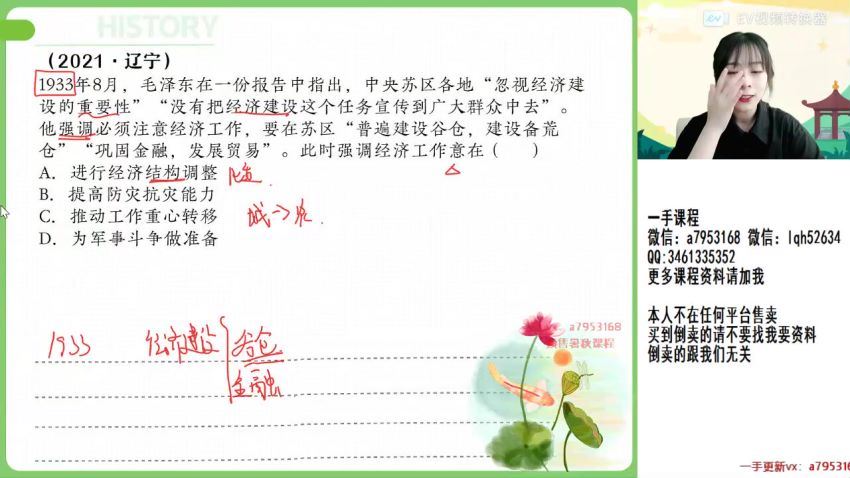 HISTORY
（2021·辽宁）
1933年8月，毛泽东在一份报告中指出，中央苏区各地“忽视经济建
设的重要性”“没有把经济建设这个任务宣传到广大群众中去”。
他强调必须注意经济工作，要在苏区“普遍建设谷仓，建设备荒
仓”“巩固金融，发展贸易”。此时强调经济工作意在（　　）
A. 进行经济结构调整
B. 提高防灾抗灾能力
C. 推动工作重心转移
城→农
D. 为军事斗争做准备
1933 经济建设 谷仓
金融
a7953168
售暑秋课程
EV视频转换器
一手课程
微信：a7953168 微信：lqh52634
QQ:3461335352
更多课程资料请加我
本人不在任何平台售卖
买到倒卖的请不要找我要资料
倒卖的跟我们无关
一手更新vx：a795316